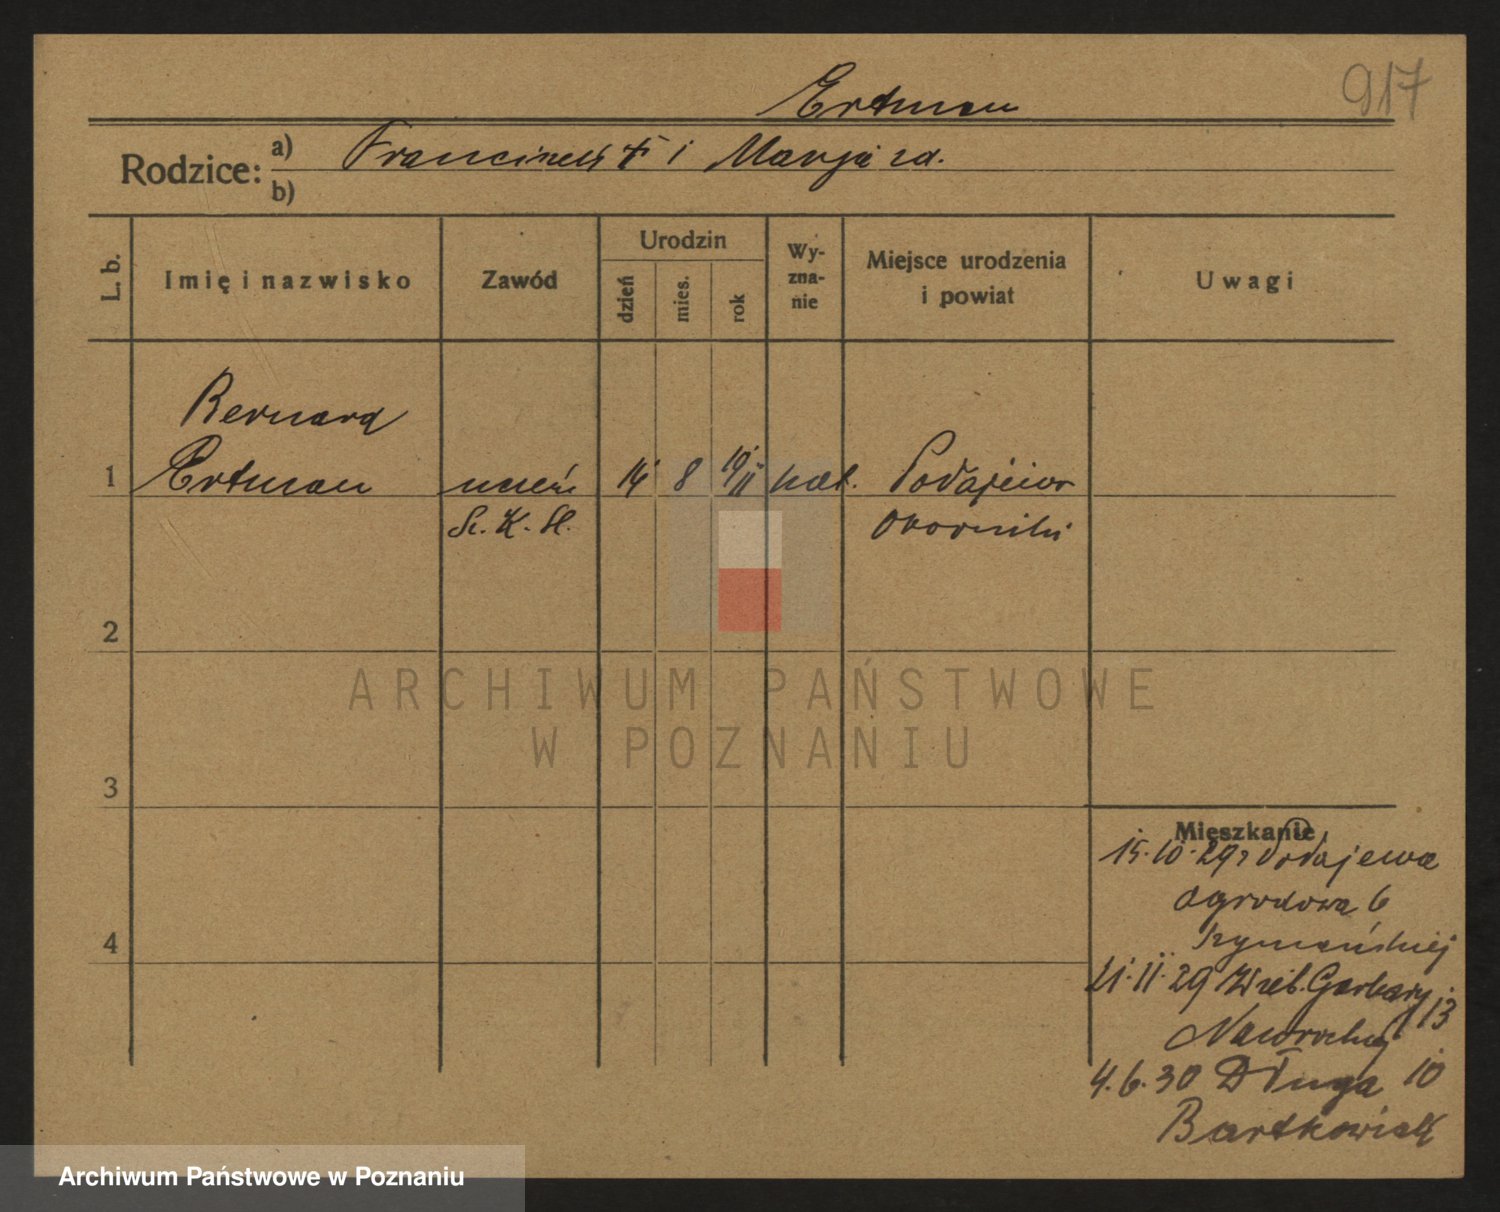 917
Ertman
Rodzice: a) Franciszek + i Marja zd.
b)
L. b.
Imię i nazwisko
Zawód
Urodzin
dzień
mies.
rok
Wy-
zna-
nie
Miejsce urodzenia
i powiat
Uwagi
Bernard
1 Ertman uczeń 14 8 1911 kat. Podajewo
S. K. H. Oborniki
2
3
4
Mieszkanie
15.10.29 z Podajewa
Ogrodowa 6
Szymańskiej
21.11.29 Wlkp. Garbary 13
4.6.30 Długa 10
Bartkowiak
ARCHIWUM PAŃSTWOWE
W POZNANIU
Archiwum Państwowe w Poznaniu